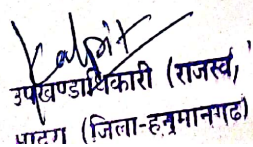 Kalpit
उपखण्डाधिकारी (राजस्व)
भादरा (जिला-हनुमानगढ)